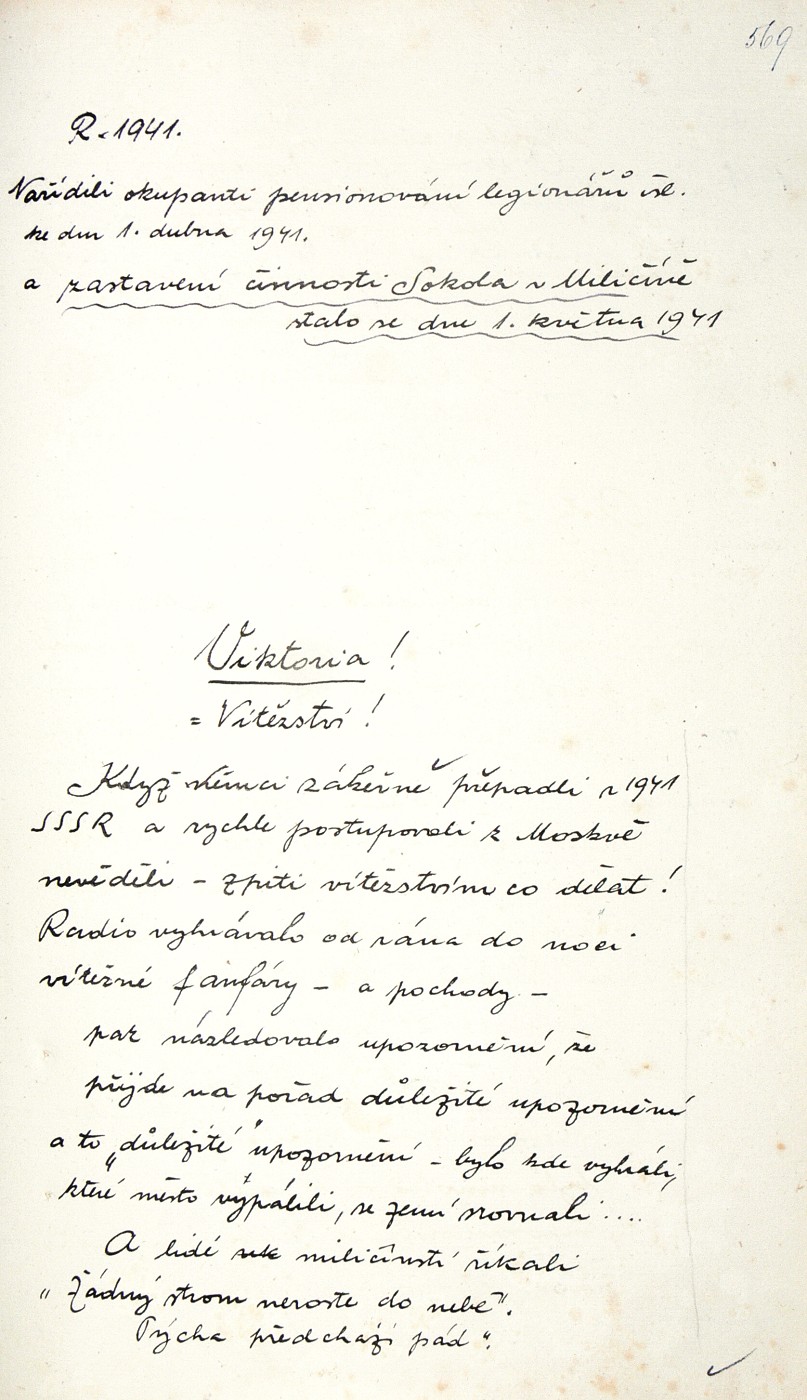 569
R. 1941.
Nařídili okupanti pensionování legionářů čsl.
ke dni 1. dubna 1941.
a zastavení činnosti Sokola v Miličíně
stalo se dne 1. května 1941
Viktoria !
= Vítězství !
Když němci zákeřně přepadli r 1941
SSSR a rychle postupovali k Moskvě
nevěděli – zpiti vítězstvím co dělat !
Radio vyhrávalo od rána do noci
vítězné fanfáry – a pochody –
pak následovalo upozornění, že
přijde na pořad důležité upozornění
a to „důležité" upozornění – bylo kde vyhráli,
které město vypálili, se zemí srovnali ....
A lidé miličínstí říkali
„Žádný strom neroste do nebe".
Pýcha předchází pád".